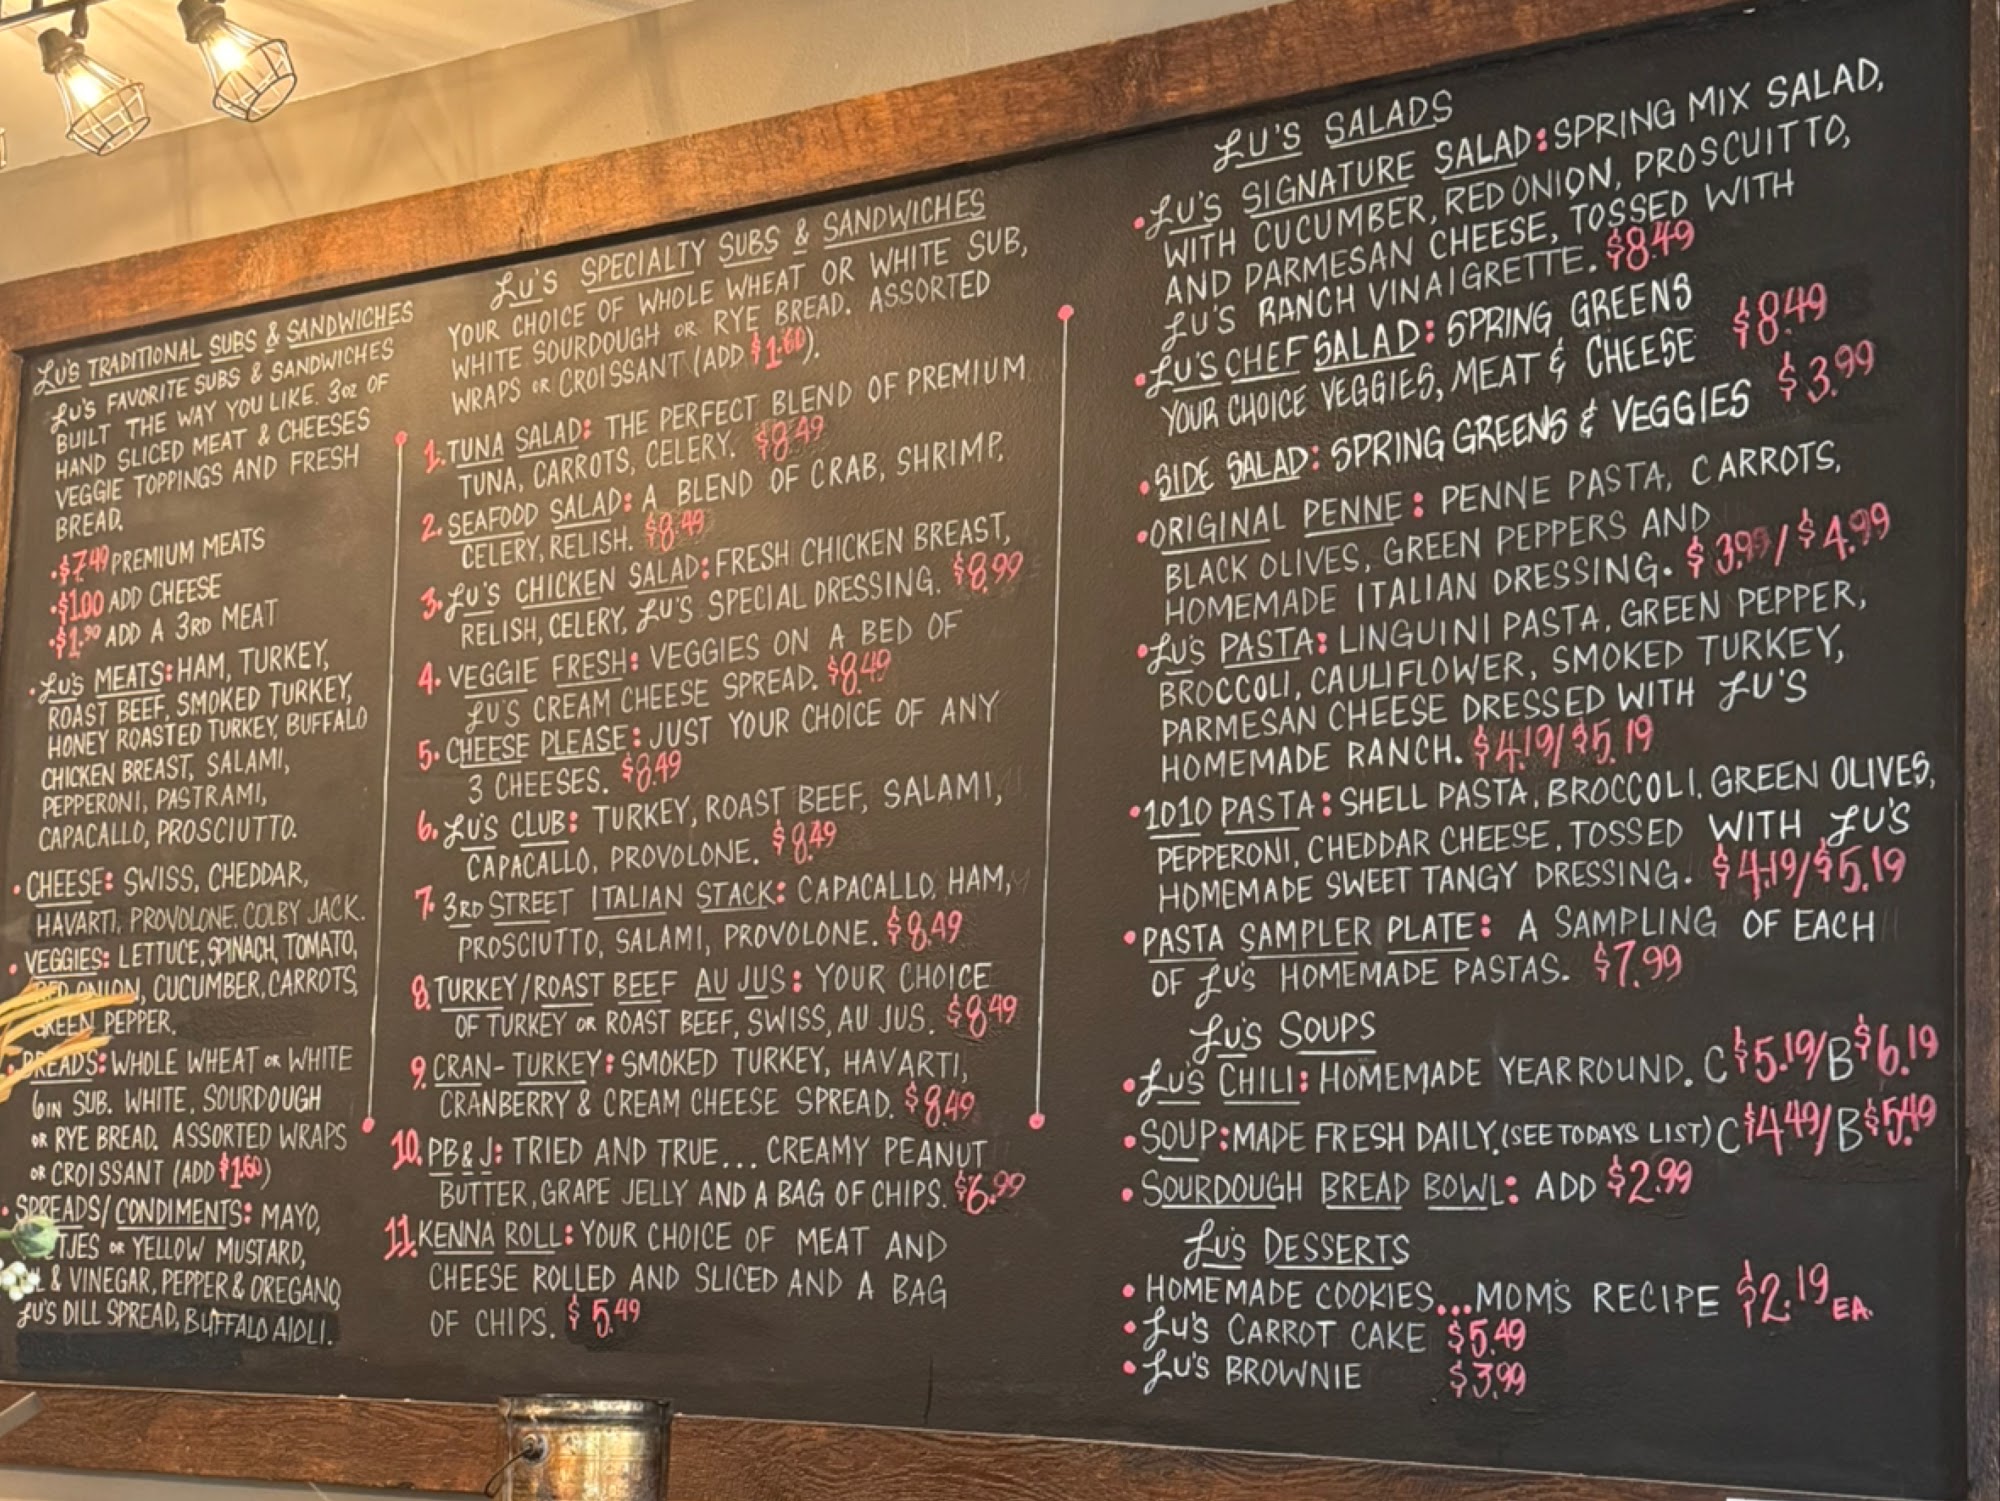 Lu's Traditional Subs & Sandwiches
Lu's Favorite Subs & Sandwiches
Built the way you like. 3oz of
hand sliced meat & cheeses
veggie toppings and fresh
bread.
• $7.49 Premium Meats
• $1.00 Add Cheese
• $1.90 Add a 3rd Meat
• Lu's Meats: Ham, Turkey,
Roast Beef, Smoked Turkey,
Honey Roasted Turkey, Buffalo
Chicken Breast, Salami,
Pepperoni, Pastrami,
Capacallo, Prosciutto.
• Cheese: Swiss, Cheddar,
Havarti, Provolone. Colby Jack.
• Veggies: Lettuce, Spinach, Tomato,
Red Onion, Cucumber, Carrots,
Green Pepper.
• Breads: Whole Wheat or White
6in Sub. White, Sourdough
or Rye Bread. Assorted Wraps
or Croissant (Add $1.60)
• Spreads/Condiments: Mayo,
or Yellow Mustard,
& Vinegar, Pepper & Oregano,
Lu's Dill Spread, Buffalo Aioli.
Lu's Specialty Subs & Sandwiches
Your choice of whole wheat or white sub,
white sourdough or rye bread. Assorted
wraps or croissant (Add $1.60).
1. Tuna Salad: The perfect blend of premium
tuna, carrots, celery. $8.49
2. Seafood Salad: A blend of crab, shrimp,
celery, relish. $8.49
3. Lu's Chicken Salad: Fresh chicken breast,
relish, celery, Lu's special dressing. $8.99
4. Veggie Fresh: Veggies on a bed of
Lu's cream cheese spread. $8.49
5. Cheese Please: Just your choice of any
3 cheeses. $8.49
6. Lu's Club: Turkey, Roast Beef, Salami,
Capacallo, Provolone. $8.49
7. 3rd Street Italian Stack: Capacallo, Ham,
Prosciutto, Salami, Provolone. $8.49
8. Turkey/Roast Beef Au Jus: Your choice
of turkey or roast beef, swiss, au jus. $8.49
9. Cran-Turkey: Smoked Turkey, Havarti,
Cranberry & Cream Cheese Spread. $8.49
10. PB & J: Tried and true... Creamy peanut
butter, grape jelly and a bag of chips. $6.99
11. Kenna Roll: Your choice of meat and
cheese rolled and sliced and a bag
of chips. $5.49
Lu's Salads
• Lu's Signature Salad: Spring mix salad,
with cucumber, red onion, proscuitto,
and parmesan cheese, tossed with
Lu's ranch vinaigrette. $8.49
• Lu's Chef Salad: Spring greens
your choice veggies, meat & cheese $8.49
• Side Salad: Spring greens & veggies $3.99
• Original Penne: Penne pasta, carrots,
black olives, green peppers and
homemade italian dressing. $3.99/$4.99
• Lu's Pasta: Linguini pasta, green pepper,
broccoli, cauliflower, smoked turkey,
parmesan cheese dressed with Lu's
homemade ranch. $4.19/$5.19
• 1010 Pasta: Shell pasta, broccoli, green olives,
pepperoni, cheddar cheese, tossed with Lu's
homemade sweet tangy dressing. $4.19/$5.19
• Pasta Sampler Plate: A sampling of each
of Lu's homemade pastas. $7.99
Lu's Soups
• Lu's Chili: Homemade year round. C $5.19/B $6.19
• Soup: Made fresh daily. (See todays list) C $4.49/B $5.49
• Sourdough Bread Bowl: Add $2.99
Lu's Desserts
• Homemade Cookies...Mom's Recipe $2.19 ea.
• Lu's Carrot Cake $5.49
• Lu's Brownie $3.99